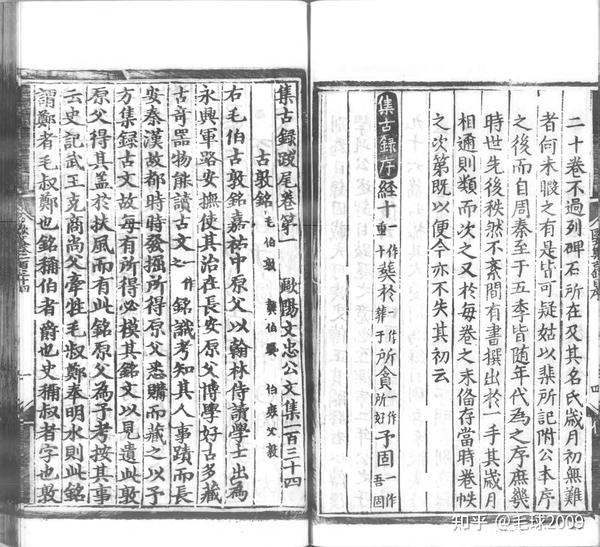 二十卷不過列碑石所在及其名氏歲月初無難
者何未暇之有是皆可疑姑以棐所記附公本序
之後而自周秦至于五季皆随年代為之序庶幾
時世先後秩然不紊間有書撰出於一手其歲月
相適則類而次之又於每卷之末偹存當時卷帙
之次第既以便今亦不失其初云
集古錄序 経十一作重十 於一作于 所貪一作所好 予固一作吾固
集古錄跋尾卷第一 歐陽文忠公文集一百三十四
古敦銘 毛伯敦 龔伯彛 伯庶父敦
右毛伯古敦銘嘉祐中原父以翰林侍讀學士出為
永興軍路安撫使其治在長安原父博學好古多藏
古奇器物能讀古文之一作銘識考知其人事蹟而長
安秦漢故都時時發掘所得原父悉購而藏之以予
方集錄古文故每有所得必模其銘文以見遺此敦
原父得其蓋於扶風而有此銘原父為予考按其事
云史記武王克商尚父牽牲毛叔鄭奉明水則此銘
謂鄭者毛叔鄭也銘稱伯者爵也史稱叔者字也敦
知乎 @毛球2009